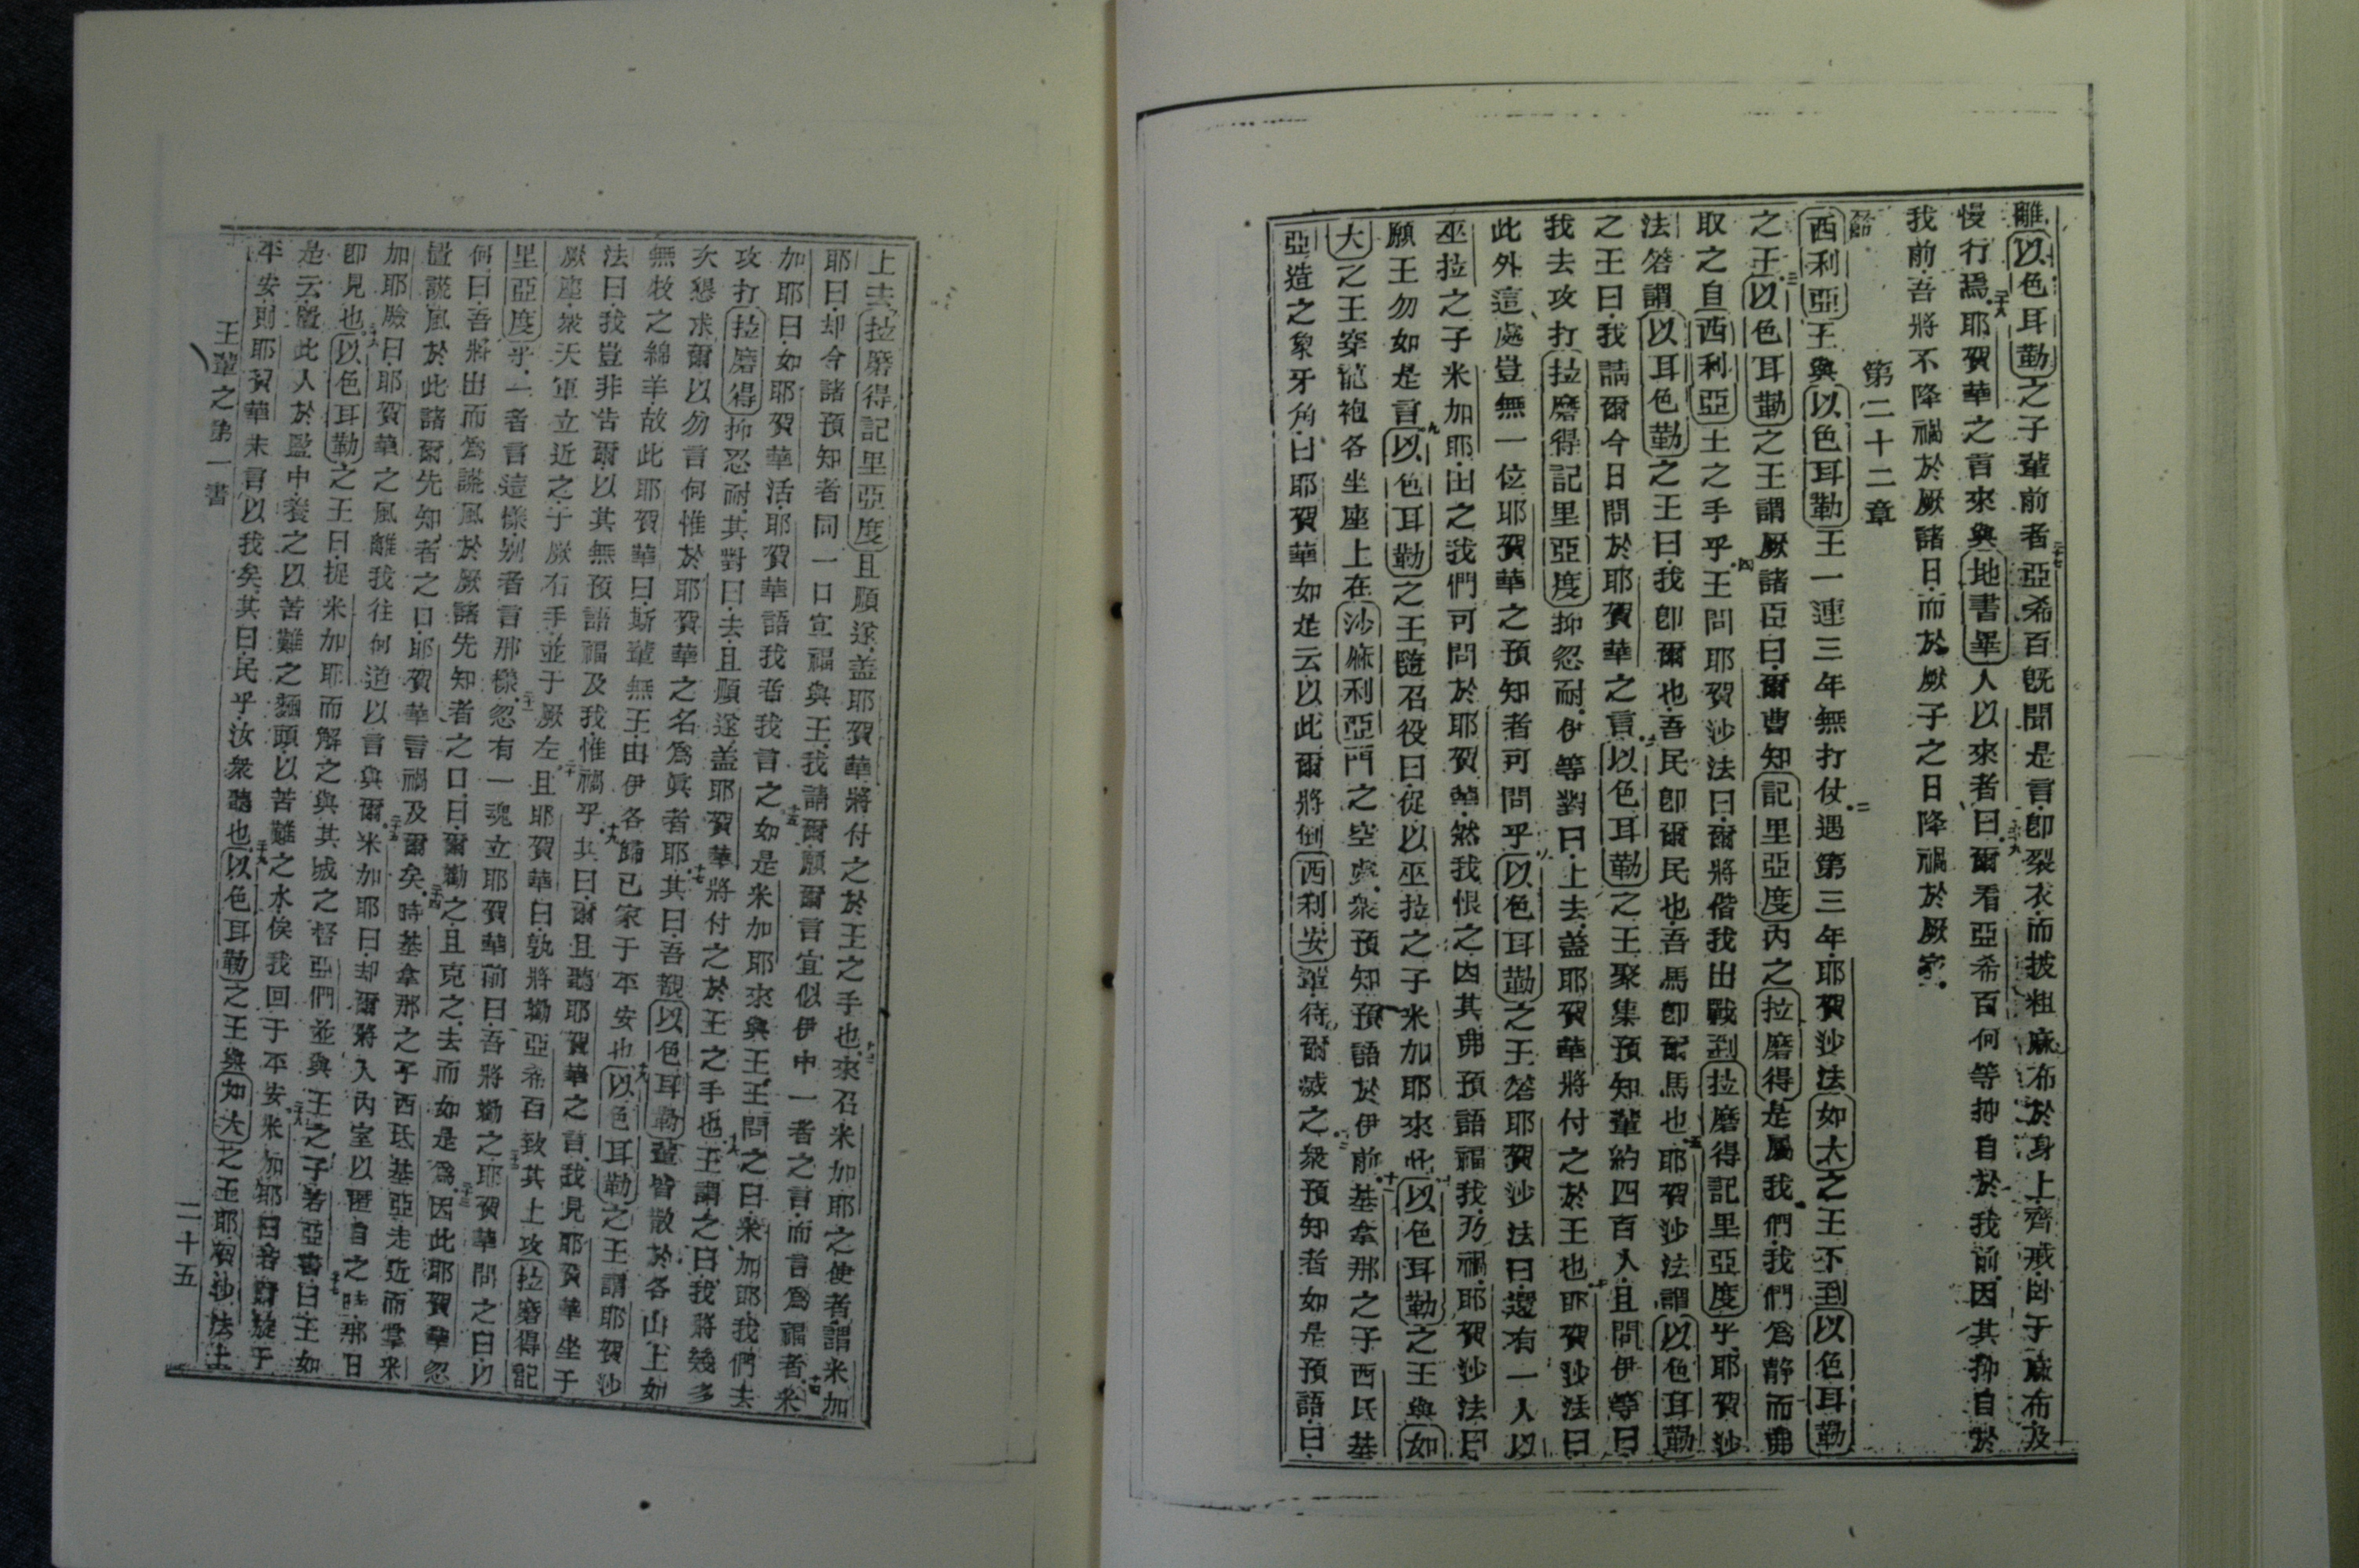 離以色耳勒之子輩前者亞希百既聞是言即裂衣而披粗麻布於身上齊戒卧于蔴布及
慢行焉耶賀華之言來與地書畢人以來者曰爾看亞希百何等抑自於我前因其抑自於
我前吾將不降禍於厥諸日而於厥子之日降禍於厥家
第二十二章
西利亞王與以色耳勒王一連三年無打仗遇第三年耶賀沙法如大之王下到以色耳勒
之王以色耳勒之王謂厥諸臣曰爾曹知記里亞度內之拉磨得是屬我們我們為静而弗
取之自西利亞王之手乎王問耶賀沙法曰爾將偕我出戰到拉磨得記里亞度乎耶賀沙
法答謂以耳色勒之王曰我即爾也吾民即爾民也吾馬即爾馬也耶賀沙法謂以色耳勒
之王曰我請爾今日問於耶賀華之言以色耳勒之王聚集預知輩約四百人且問伊等曰
我去攻打拉磨得記里亞度抑忍耐伊等對曰上去蓋耶賀華將付之於王也耶賀沙法曰
此外這處豈無一位耶賀華之預知者可問乎以色耳勒之王答耶賀沙法曰還有一人以
巫拉之子米加耶由之我們可問於耶賀華然我恨之因其弗預語福我乃禍耶賀沙法曰
願王勿如是言以色耳勒之王隨召役曰從以巫拉之子米加耶來此以色耳勒之王與如
大之王穿龍袍各坐座上在沙麻利亞門之空處衆預知預語於伊前基拿那之子西氐基
亞造之象牙角曰耶賀華如是云以此爾將倒西利安輩待爾滅之衆預知者如是預語曰
上去拉磨得記里亞度且順遂盖耶賀華將付之於王之手也來召米加耶之使者謂米加
耶曰却今諸預知者同一口宣福與王我請爾願爾言宜似伊中一者之言而言為福者米
加耶曰如耶賀華活耶賀華語我者我言之如是米加耶來與王王問之曰米加耶我們去
攻打拉磨得抑忍耐其對曰去且順遂盖耶賀華將付之於王之手也王謂之曰我將幾多
次懇求爾以勿言何惟於耶賀華之名為眞者耶其曰吾觀以色耳勒輩皆散於各山上如
無牧之綿羊故此耶賀華曰斯輩無王由伊各歸已家于平安也以色耳勒之王謂耶賀沙
法曰我豈非告爾以其無預語福及我惟禍乎其曰爾且聽耶賀華之言我見耶賀華坐于
厥座衆天軍立近之于厥右手並于厥左且耶賀華曰孰將勸亞希百致其上攻拉磨得記
里亞度乎一者言這樣别者言那樣忽有一魂立耶賀華前曰吾將勸之耶賀華問之曰以
何曰吾將出而為謊風於厥諸先知者之口曰爾勸之且克之去而如是為因此耶賀華忽
置謊風於此諸爾先知者之口耶賀華言禍及爾矣時基拿那之子西氐基亞走近而掌米
加耶臉曰耶賀華之風離我往何道以言與爾米加耶曰却爾將入內室以匿自之時那日
即見也以色耳勒之王曰捉米加耶而解之與其城之督亞們並與王之子若亞書曰王如
是云置此人於監中養之以苦難之麵頭以苦難之水俟我回于平安米加耶曰若爾旋于
平安則耶賀華未言以我矣其曰民乎汝衆聽也以色耳勒之王與如大之王耶賀沙法上
王輩之第一書
二十五